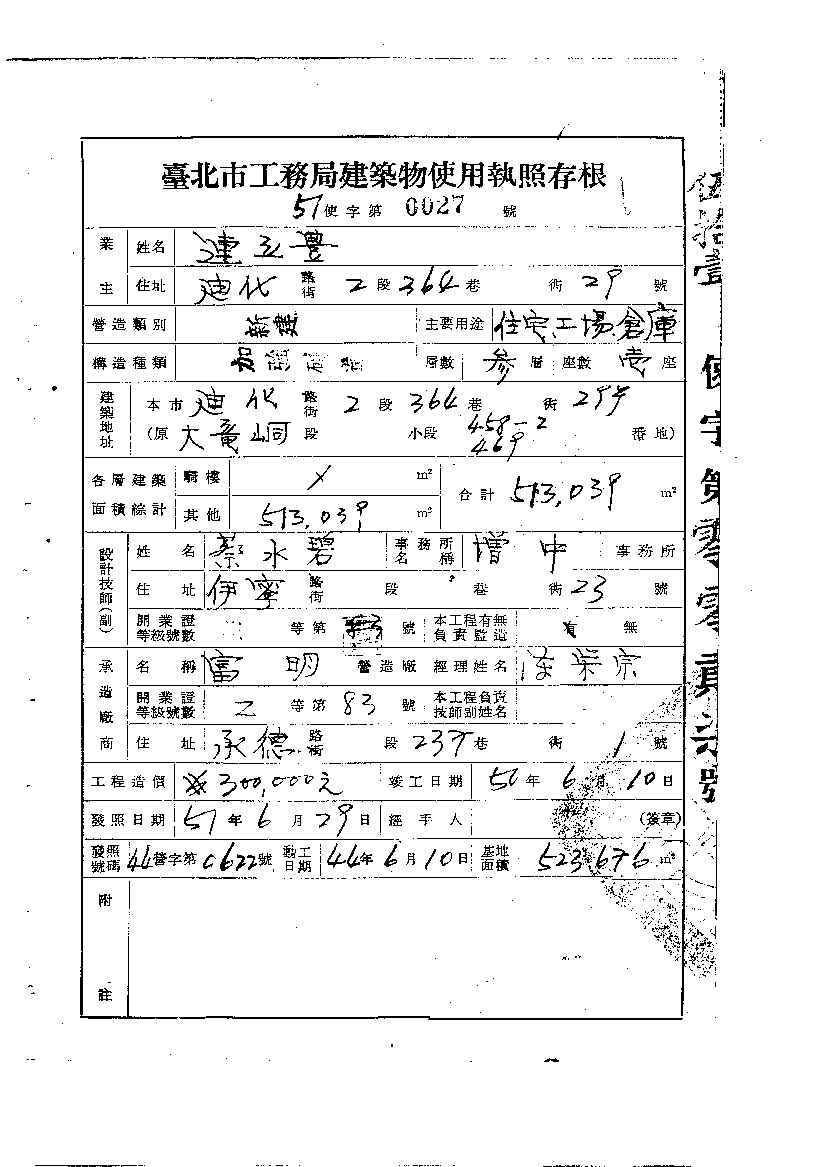 臺北市工務局建築物使用執照存根
51使字第 0027 號
業主 姓名 連玉豊
住址 迪化 路街 2段 364巷 衖 29 號
營造類別 主要用途 住宅工場倉庫
構造種類 層數 參層 座數 壹座
建築地址 本市 迪化 路街 2段 364巷 衖
(原 大竜峒 段 小段 469 番地)
各層建築面積綜計 騎樓 m² 合計 513,039 m²
其他 513,039 m²
設計技師(副) 姓名 蔡水碧 事務所名稱 增中 事務所
住址 伊寧 路街 段 巷 衖 23 號
開業證等級號數 等第 號 本工程有無負責監造 有 無
承造廠商 名稱 富明 營造廠 經理姓名
開業證等級號數 乙 等第 83 號 本工程負責技師副姓名
住址 承德 路街 段 巷 衖 1 號
工程造價 300,000元 竣工日期 50年 6月 10日
發照日期 51年 6月 29日 經手人 (簽章)
發照號碼 44營字第 0622號 動工日期 44年 6月 10日 基地面積 523,676 m²
附註
伍拾壹 使字第零零貳柒號